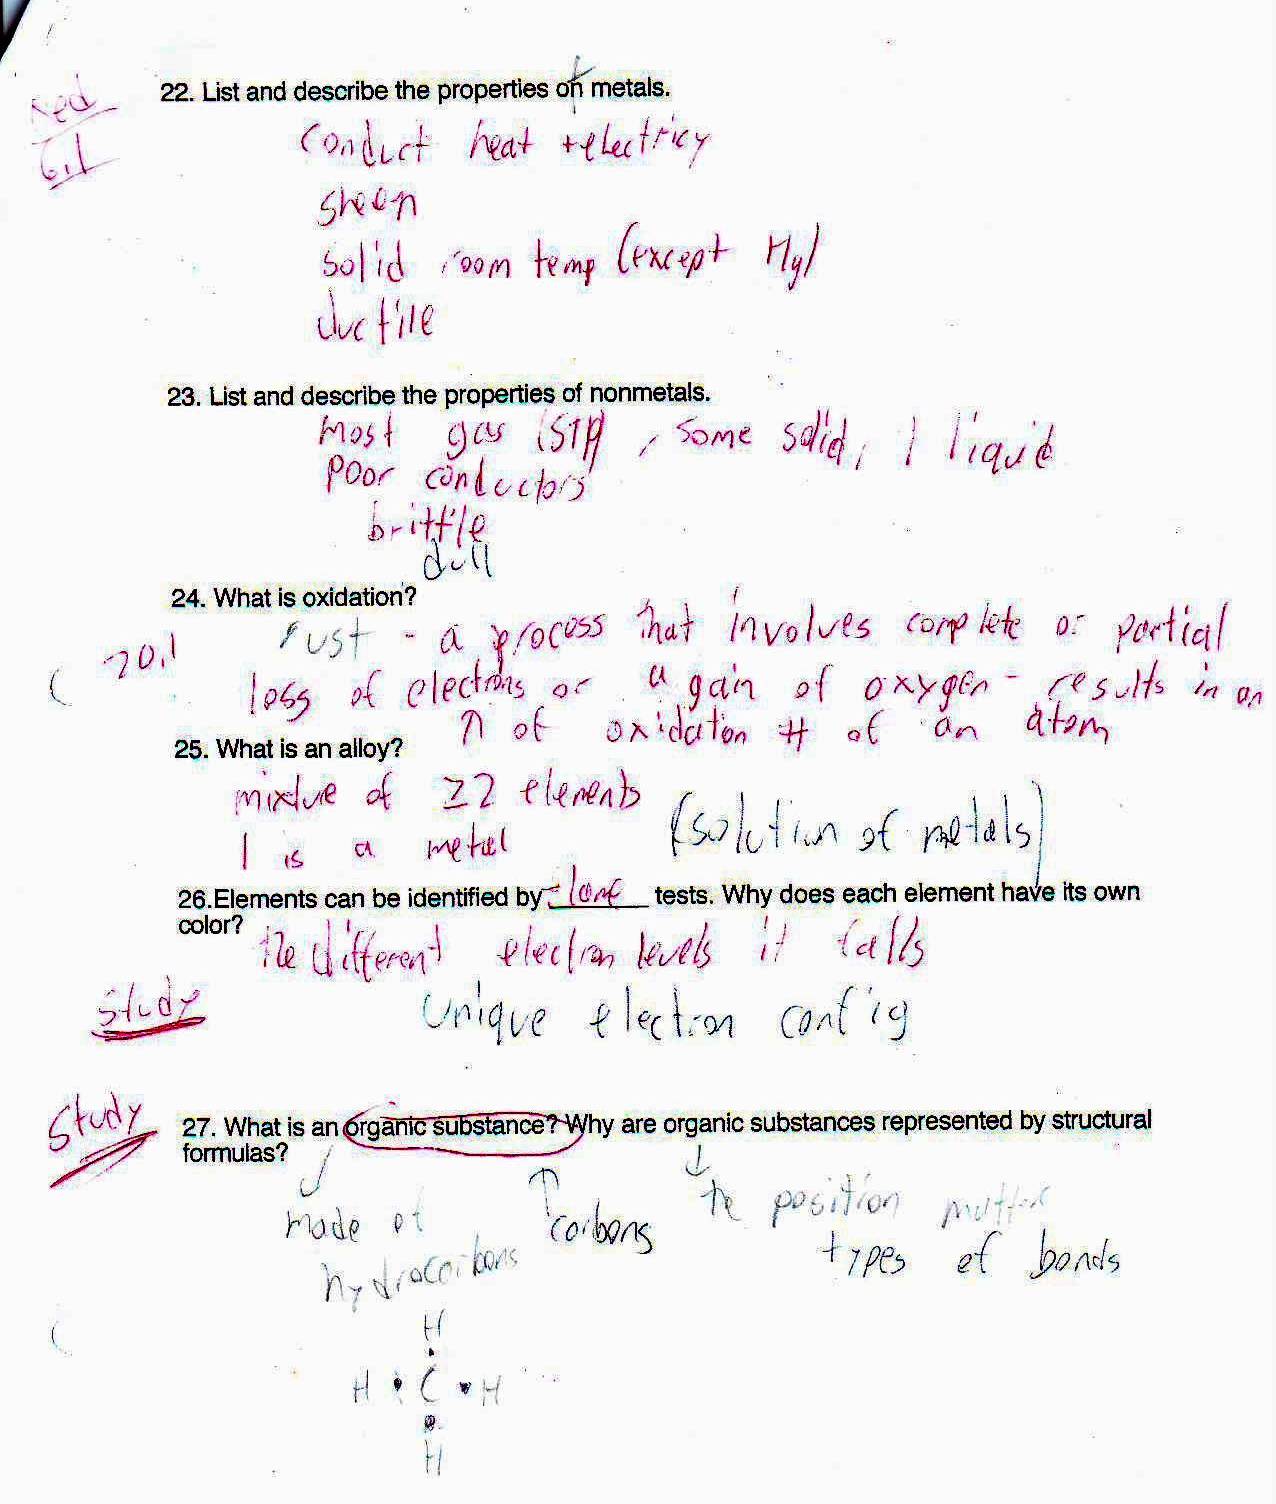 Red
6.1
22. List and describe the properties of metals.
conduct heat + electricy
sheen
solid room temp (except Hg)
ductile
23. List and describe the properties of nonmetals.
most gas (STP), some solid, 1 liquid
poor conductors
brittle
dull
24. What is oxidation?
20.1
rust - a process that involves complete or partial
loss of electrons or a gain of oxygen - results in an
↑ of oxidation # of an atom
25. What is an alloy?
mixture of ≥2 elements
1 is a metal
(solution of metals)
26.Elements can be identified by tests. Why does each element have its own
color?
the different electron levels it falls
Study
unique electron config
Study
27. What is an organic substance? Why are organic substances represented by structural
formulas?
made of
hydrocarbons
carbons
the position matter
types of bonds
H
H : C • H
H